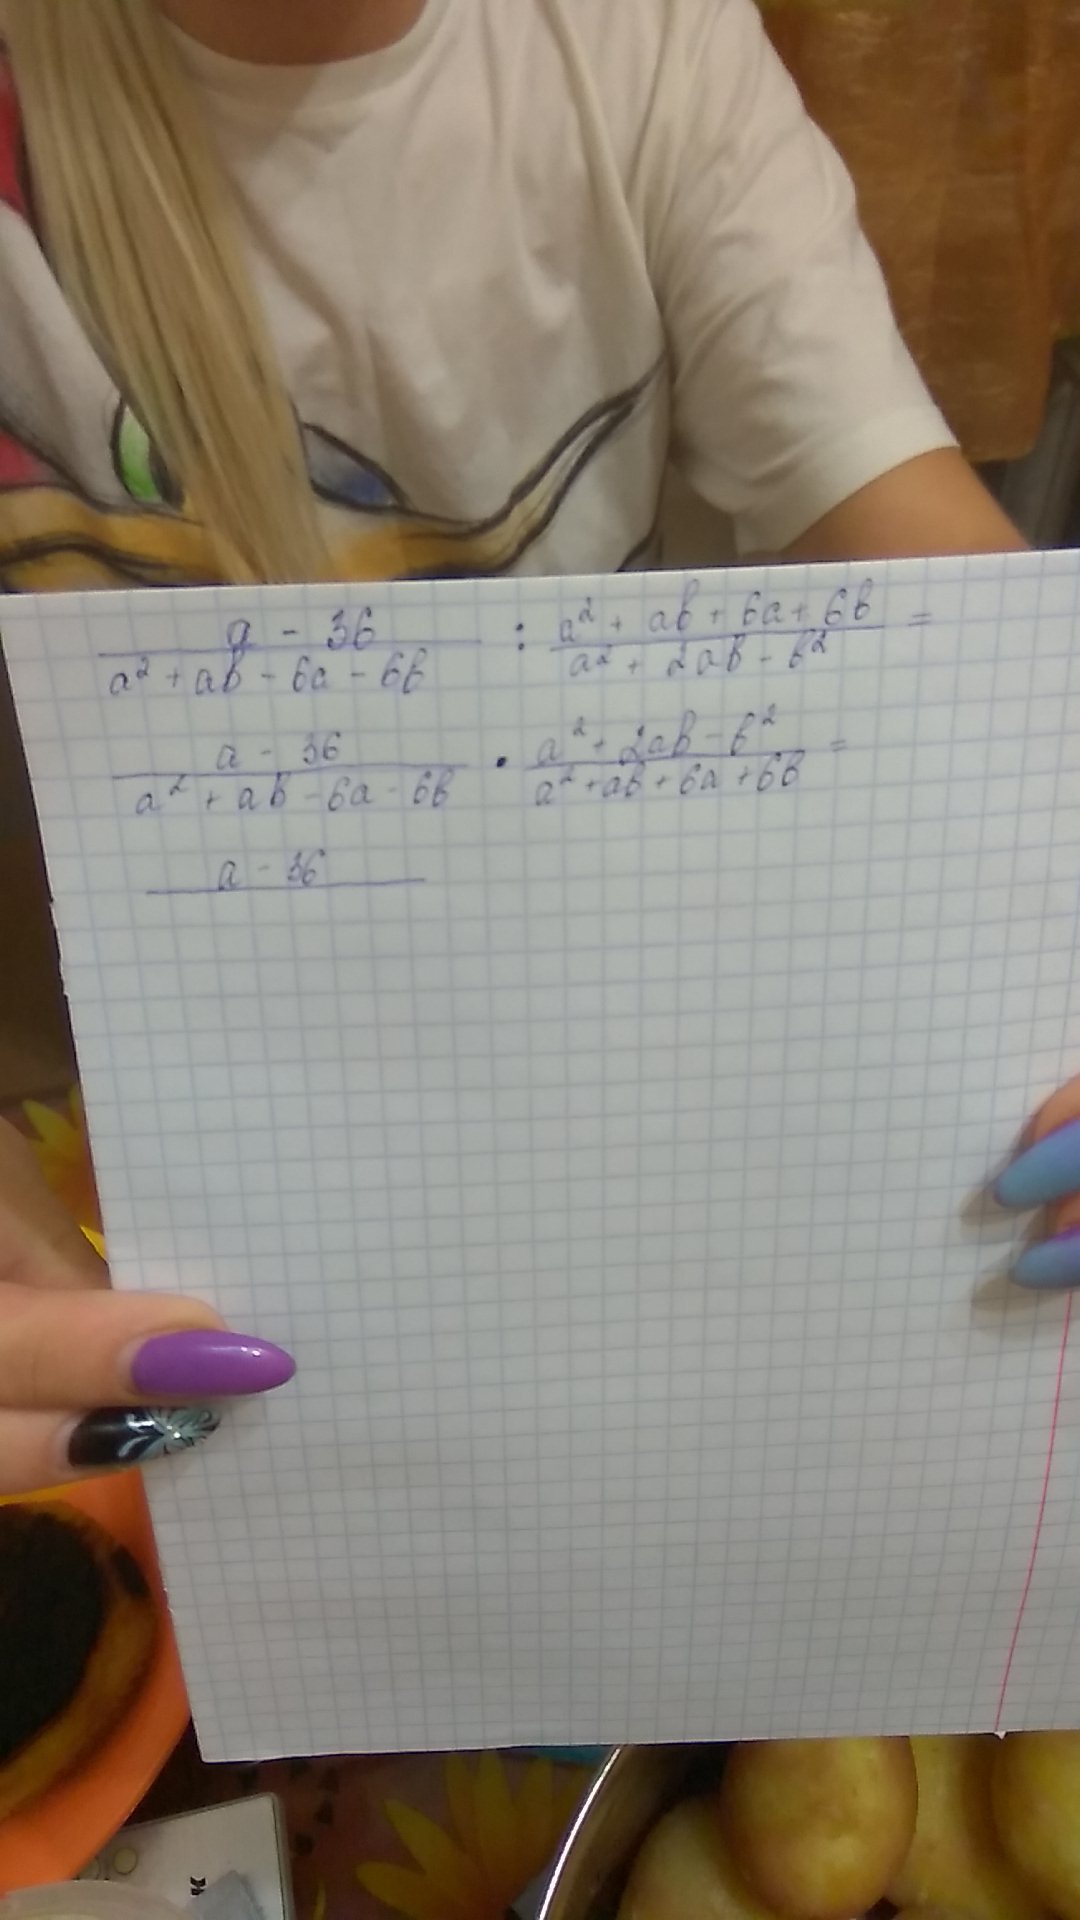 a - 36 / a² + ab - 6a - 6b : a² + ab + 6a + 6b / a² + 2ab - b² =
a - 36 / a² + ab - 6a - 6b · a² + 2ab - b² / a² + ab + 6a + 6b =
a - 36